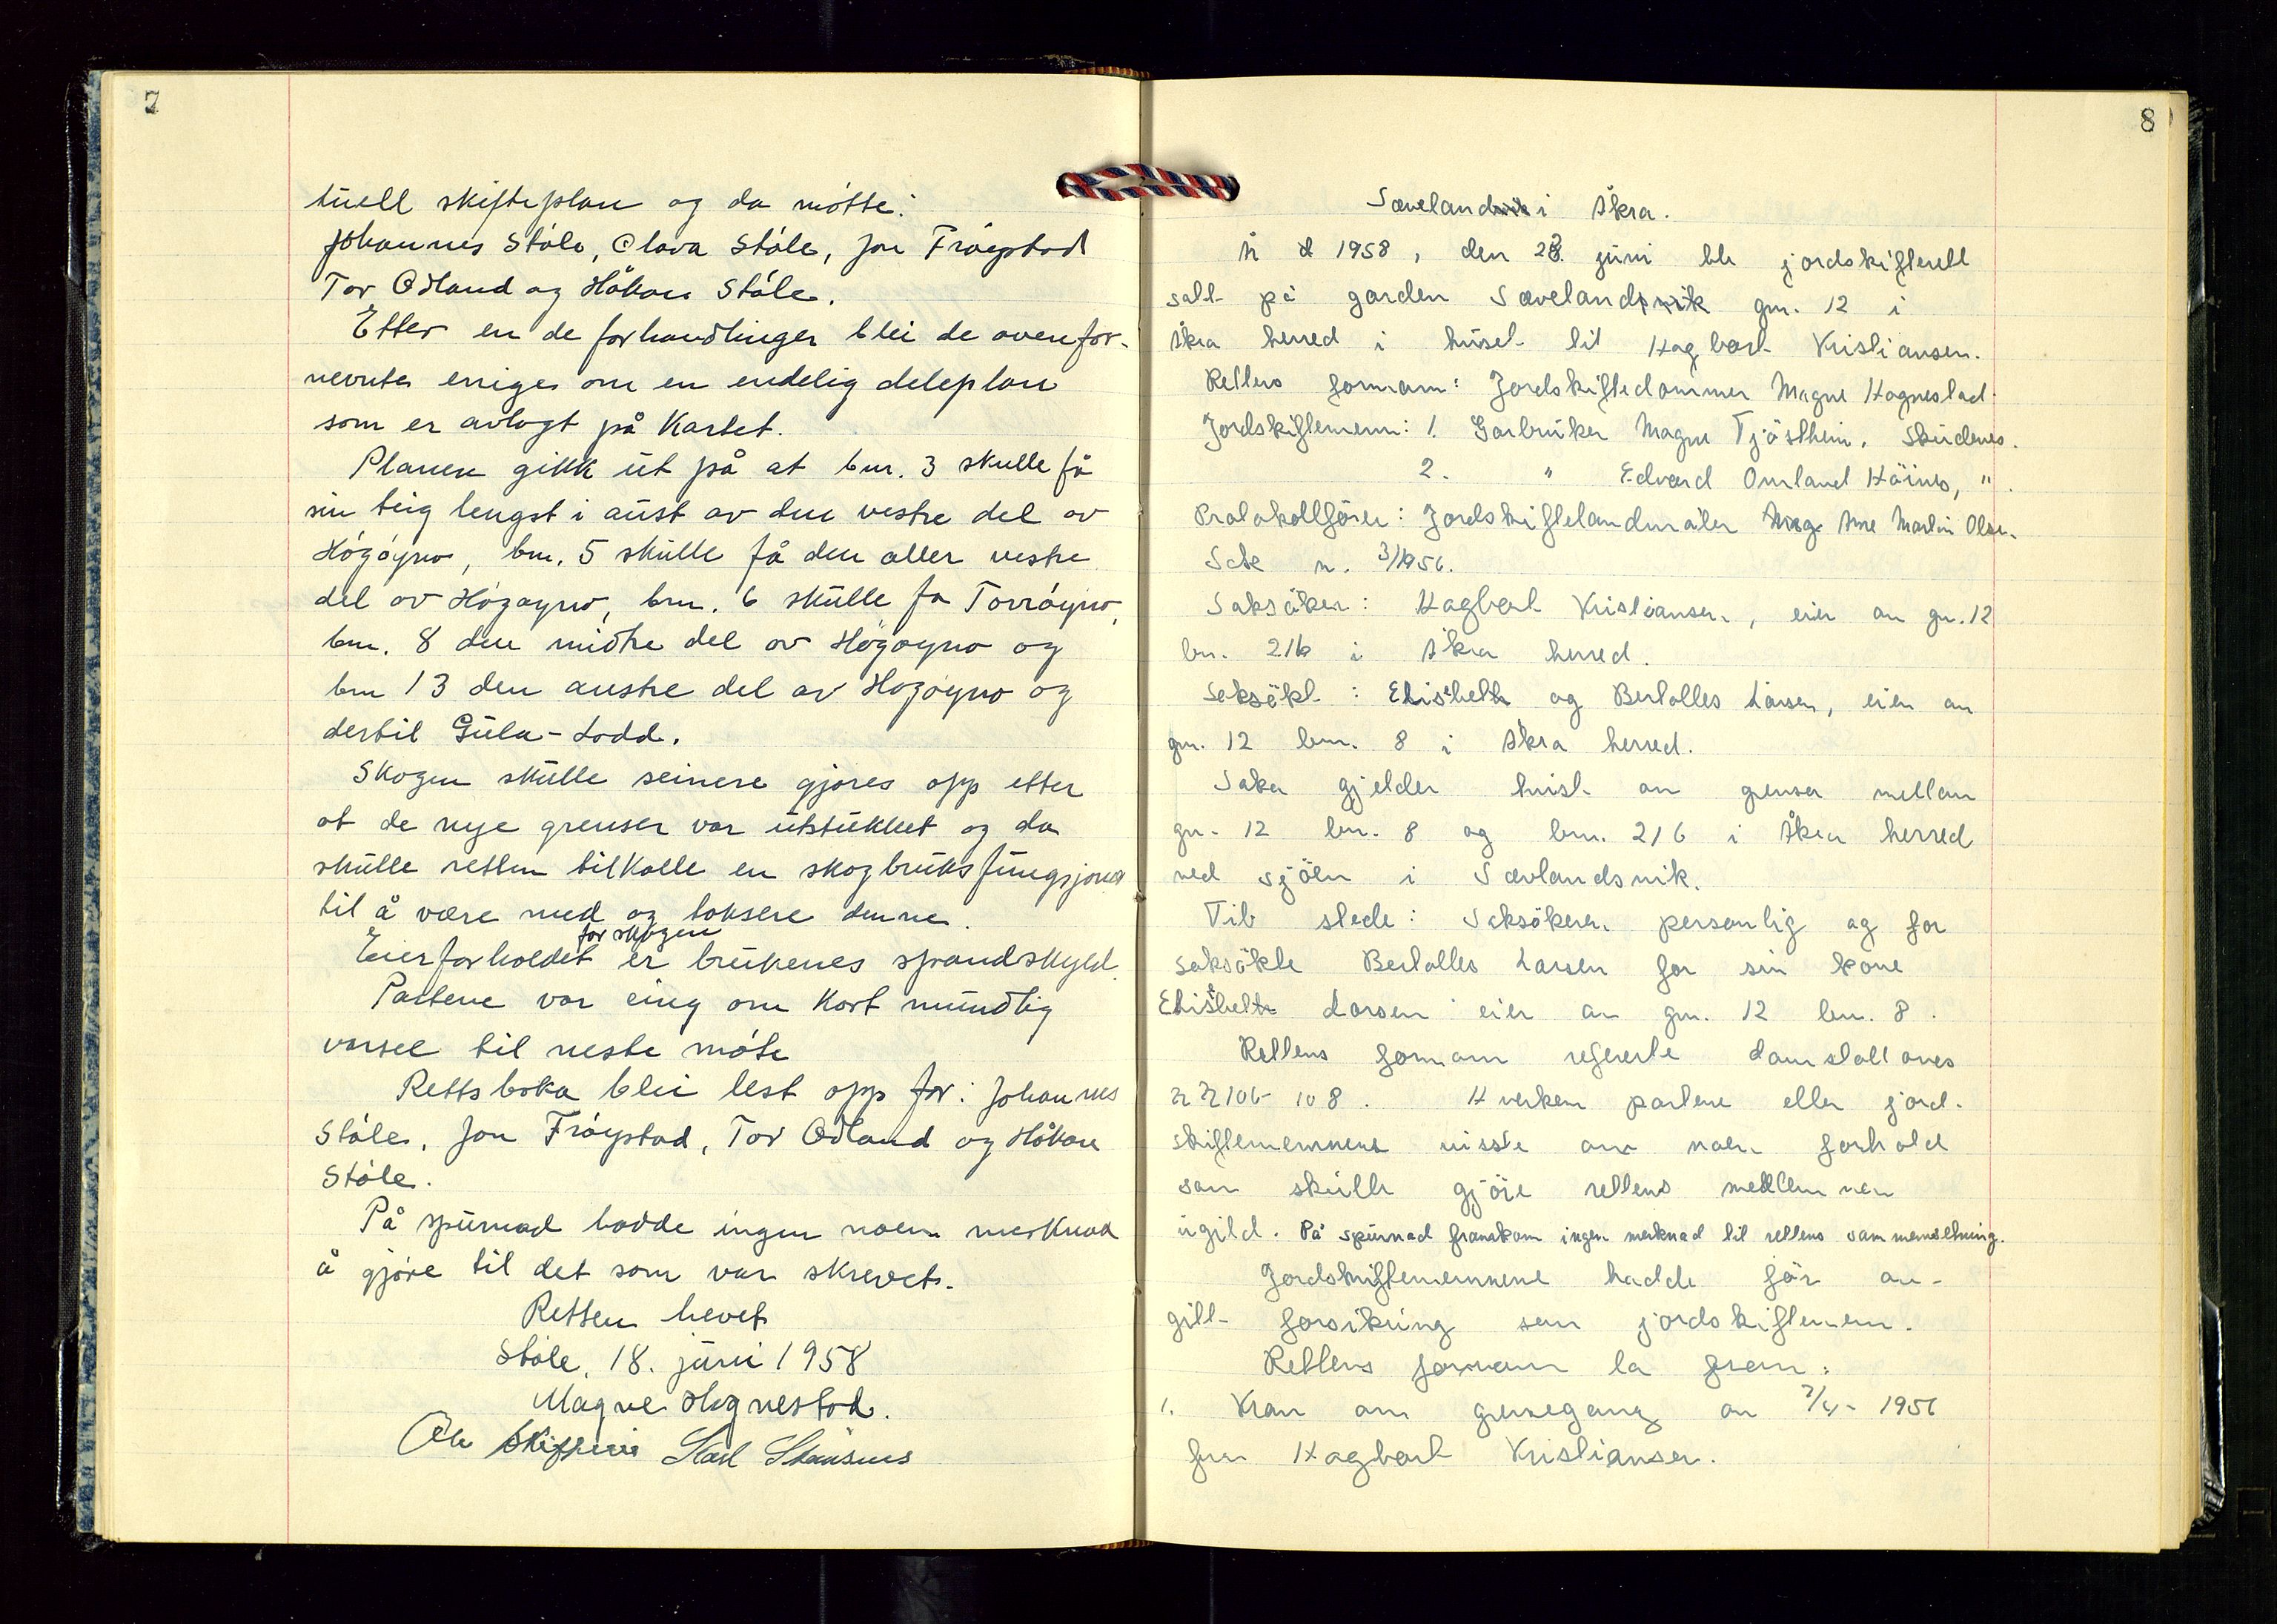 7
tuell skifteplan og da møtte:
Johannes Støle, Olava Støle, Jon Frøystad
Tor Odland og Håkon Støle.
Etter en de forhandlinger blei de ovenfor-
nevnte eniges om en endelig deleplan
som er avlagt på Kartet.
Planen gikk ut på at bnr. 3 skulle få
sin teig lengst i aust av den vestre del av
Høgøyno, bnr. 5 skulle få den aller vestre
del av Høgøyno, bnr. 6 skulle få Torrøyno,
bnr. 8 den midtre del av Høgøyno og
bnr 13 den austre del av Høgøyno og
dertil Gula-Lodd.
Skogen skulle seinere gjøres opp etter
at de nye grenser var utstukket og da
skulle retten tilkalle en skogbruksfungsjonær
til å være med og taksere denne.
for skogen
Eierforholdet er brukenes skyld.
Partene var einig om kort mundtlig
varsel til neste møte
Rettsboka blei lest opp for: Johannes
Støle, Jon Frøystad, Tor Odland og Håkon
Støle.
På spurnad hadde ingen noen merknad
å gjøre til det som var skrevet.
Retten hevet
Støle, 18. juni 1958
Magne Hognestad.
Ole
8
Sævelandsvik i Åkra.
År 1958, den 23. juni ble jordskifterett
satt på garden Sævelandsvik gnr. 12 i
Åkra herred i huset til Hagbart Kristiansen.
Rettens formann: Jordskiftedommer Magne Hognestad.
Jordskiftemenn: 1. Garbruker Magne Tjøsthein, Skudenes.
2. " Edvard Omland Høines, ".
Protokollfører: Jordskiftelandmåler Arne Martin Olsen.
Sak nr. 3/1956.
Saksøker: Hagbart Kristiansen, eier av gnr. 12
bnr. 216 i Åkra herred.
Saksøkt: Elisebeth og Bertolles Larsen, eier av
gnr. 12 bnr. 8 i Åkra herred.
Saka gjelder tvist om grensa mellom
gnr. 12 bnr. 8 og bnr. 216 i Åkra herred
ved sjøen i Sævlandsvik.
Til stede: Saksøkeren personlig og for
saksøkte Bertolles Larsen for sin kone
Elisebeth Larsen eier av gnr. 12 bnr. 8.
Rettens formann refererte domstolloves
§§ 106-108. Hverken partene eller jord-
skiftemennene visste om noen forhold
som skulle gjøre rettens medlemmer
ugild. På spurnad framkom ingen merknad til rettens sammensetning.
Jordskiftemennene hadde før av-
gitt forsikring som jordskiftemenn.
Rettens formann la fram:
1. Krav om grensegang av 7/4- 1956
fra Hagbart Kristiansen.